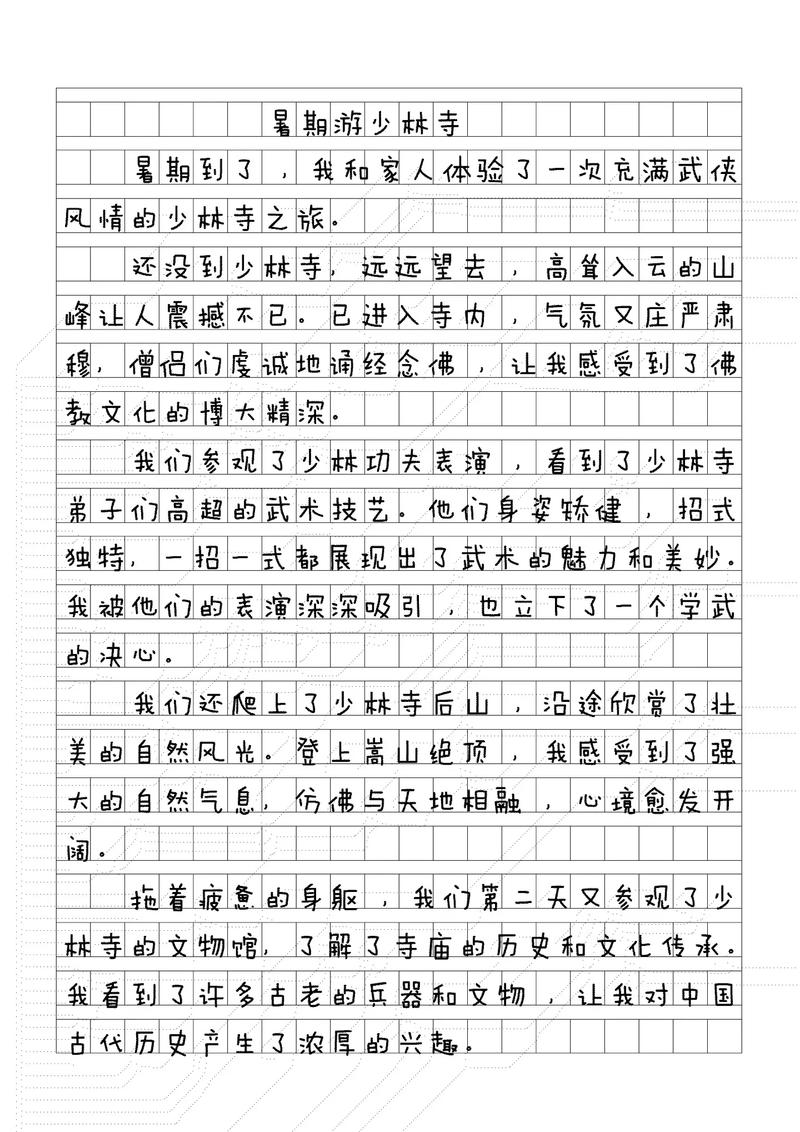 暑期游少林寺
暑期到了，我和家人体验了一次充满武侠
风情的少林寺之旅。
还没到少林寺，远远望去，高耸入云的山
峰让人震撼不已。已进入寺内，气氛又庄严肃
穆，僧侣们虔诚地诵经念佛，让我感受到了佛
教文化的博大精深。
我们参观了少林功夫表演，看到了少林寺
弟子们高超的武术技艺。他们身姿矫健，招式
独特，一招一式都展现出了武术的魅力和美妙。
我被他们的表演深深吸引，也立下了一个学武
的决心。
我们还爬上了少林寺后山，沿途欣赏了壮
美的自然风光。登上嵩山绝顶，我感受到了强
大的自然气息，仿佛与天地相融，心境愈发开
阔。
拖着疲惫的身躯，我们第二天又参观了少
林寺的文物馆，了解了寺庙的历史和文化传承。
我看到了许多古老的兵器和文物，让我对中国
古代历史产生了浓厚的兴趣。